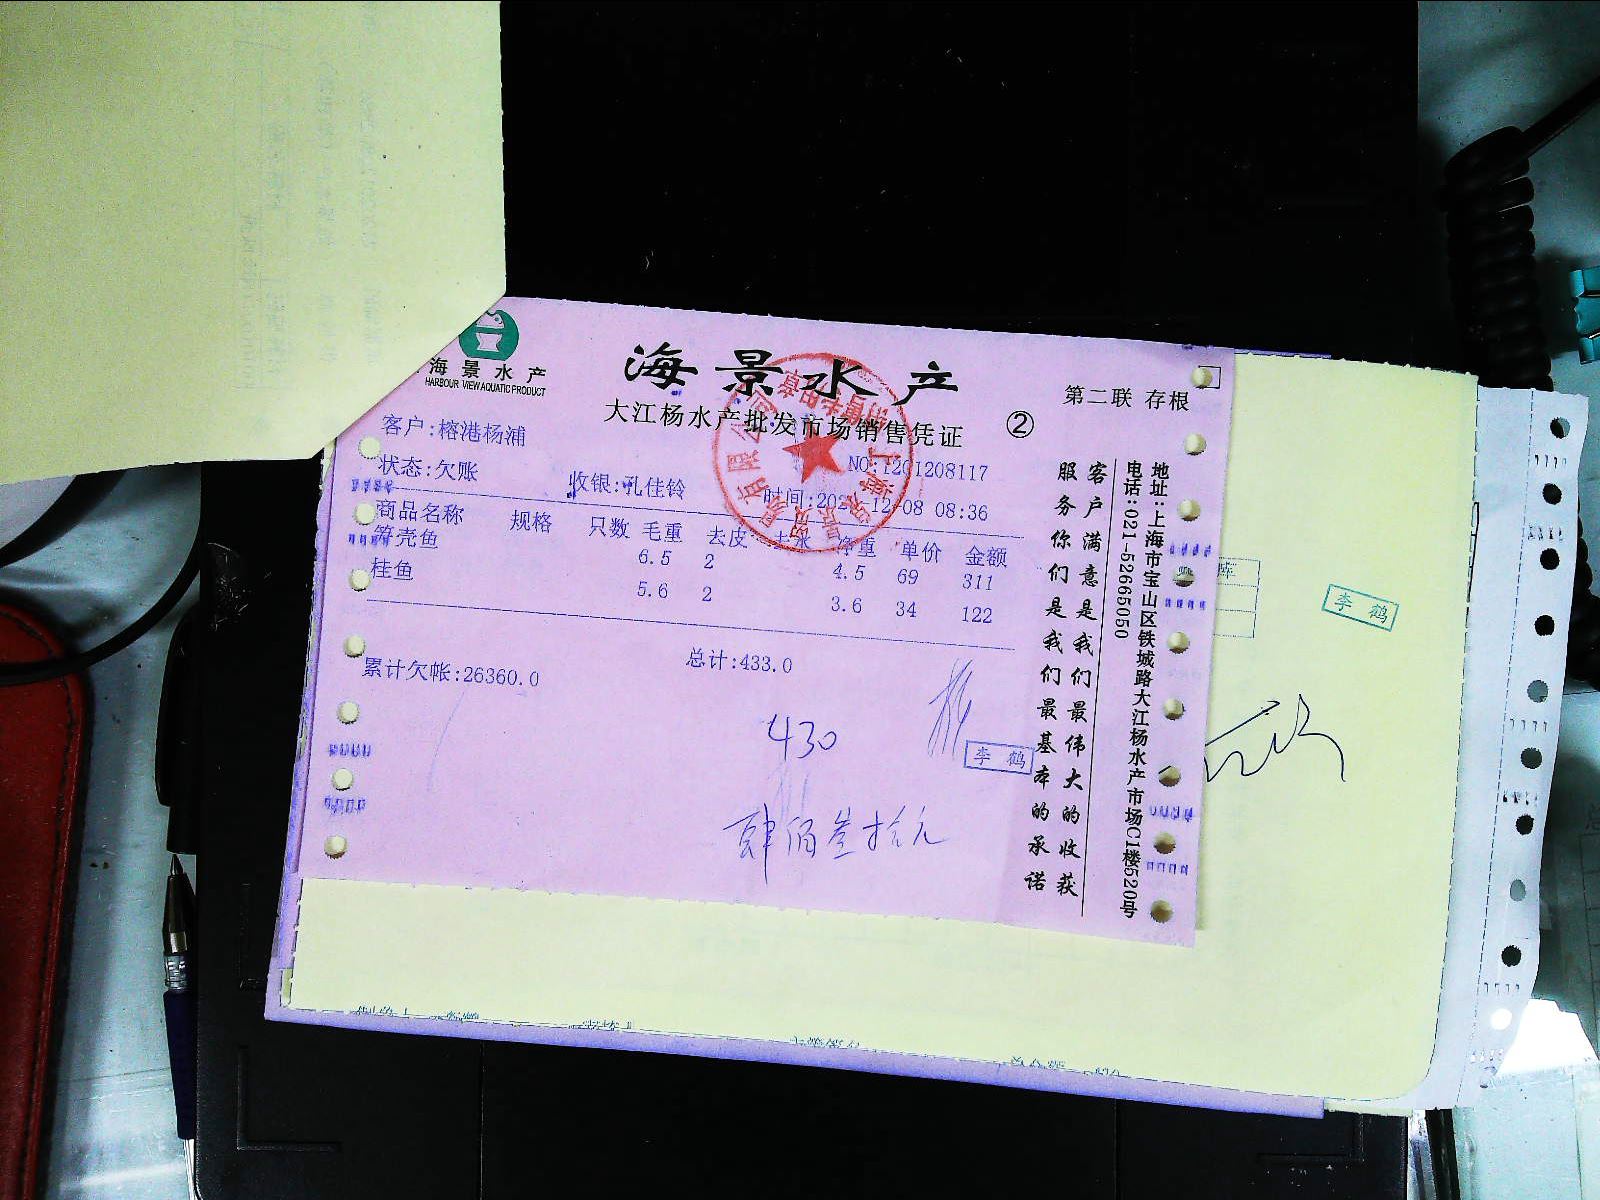 海景水产
HARBOUR VIEW AQUATIC PRODUCT
海景水产
第二联 存根
大江杨水产批发市场销售凭证 ②
客户:榕港杨浦
NO:1201208117
状态:欠账 收银:孔佳铃 时间:202 -12-08 08:36
商品名称 规格 只数 毛重 去皮 去水 净重 单价 金额
笋壳鱼 6.5 2 4.5 69 311
桂鱼 5.6 2 3.6 34 122
累计欠帐:26360.0 总计:433.0
430
李鹤
肆佰叁拾元
客户满意是我们最伟大的收获
服务你们是我们最基本的承诺
地址:上海市宝山区铁城路大江杨水产市场C1楼520号
电话:021-52665050
库
李鹤